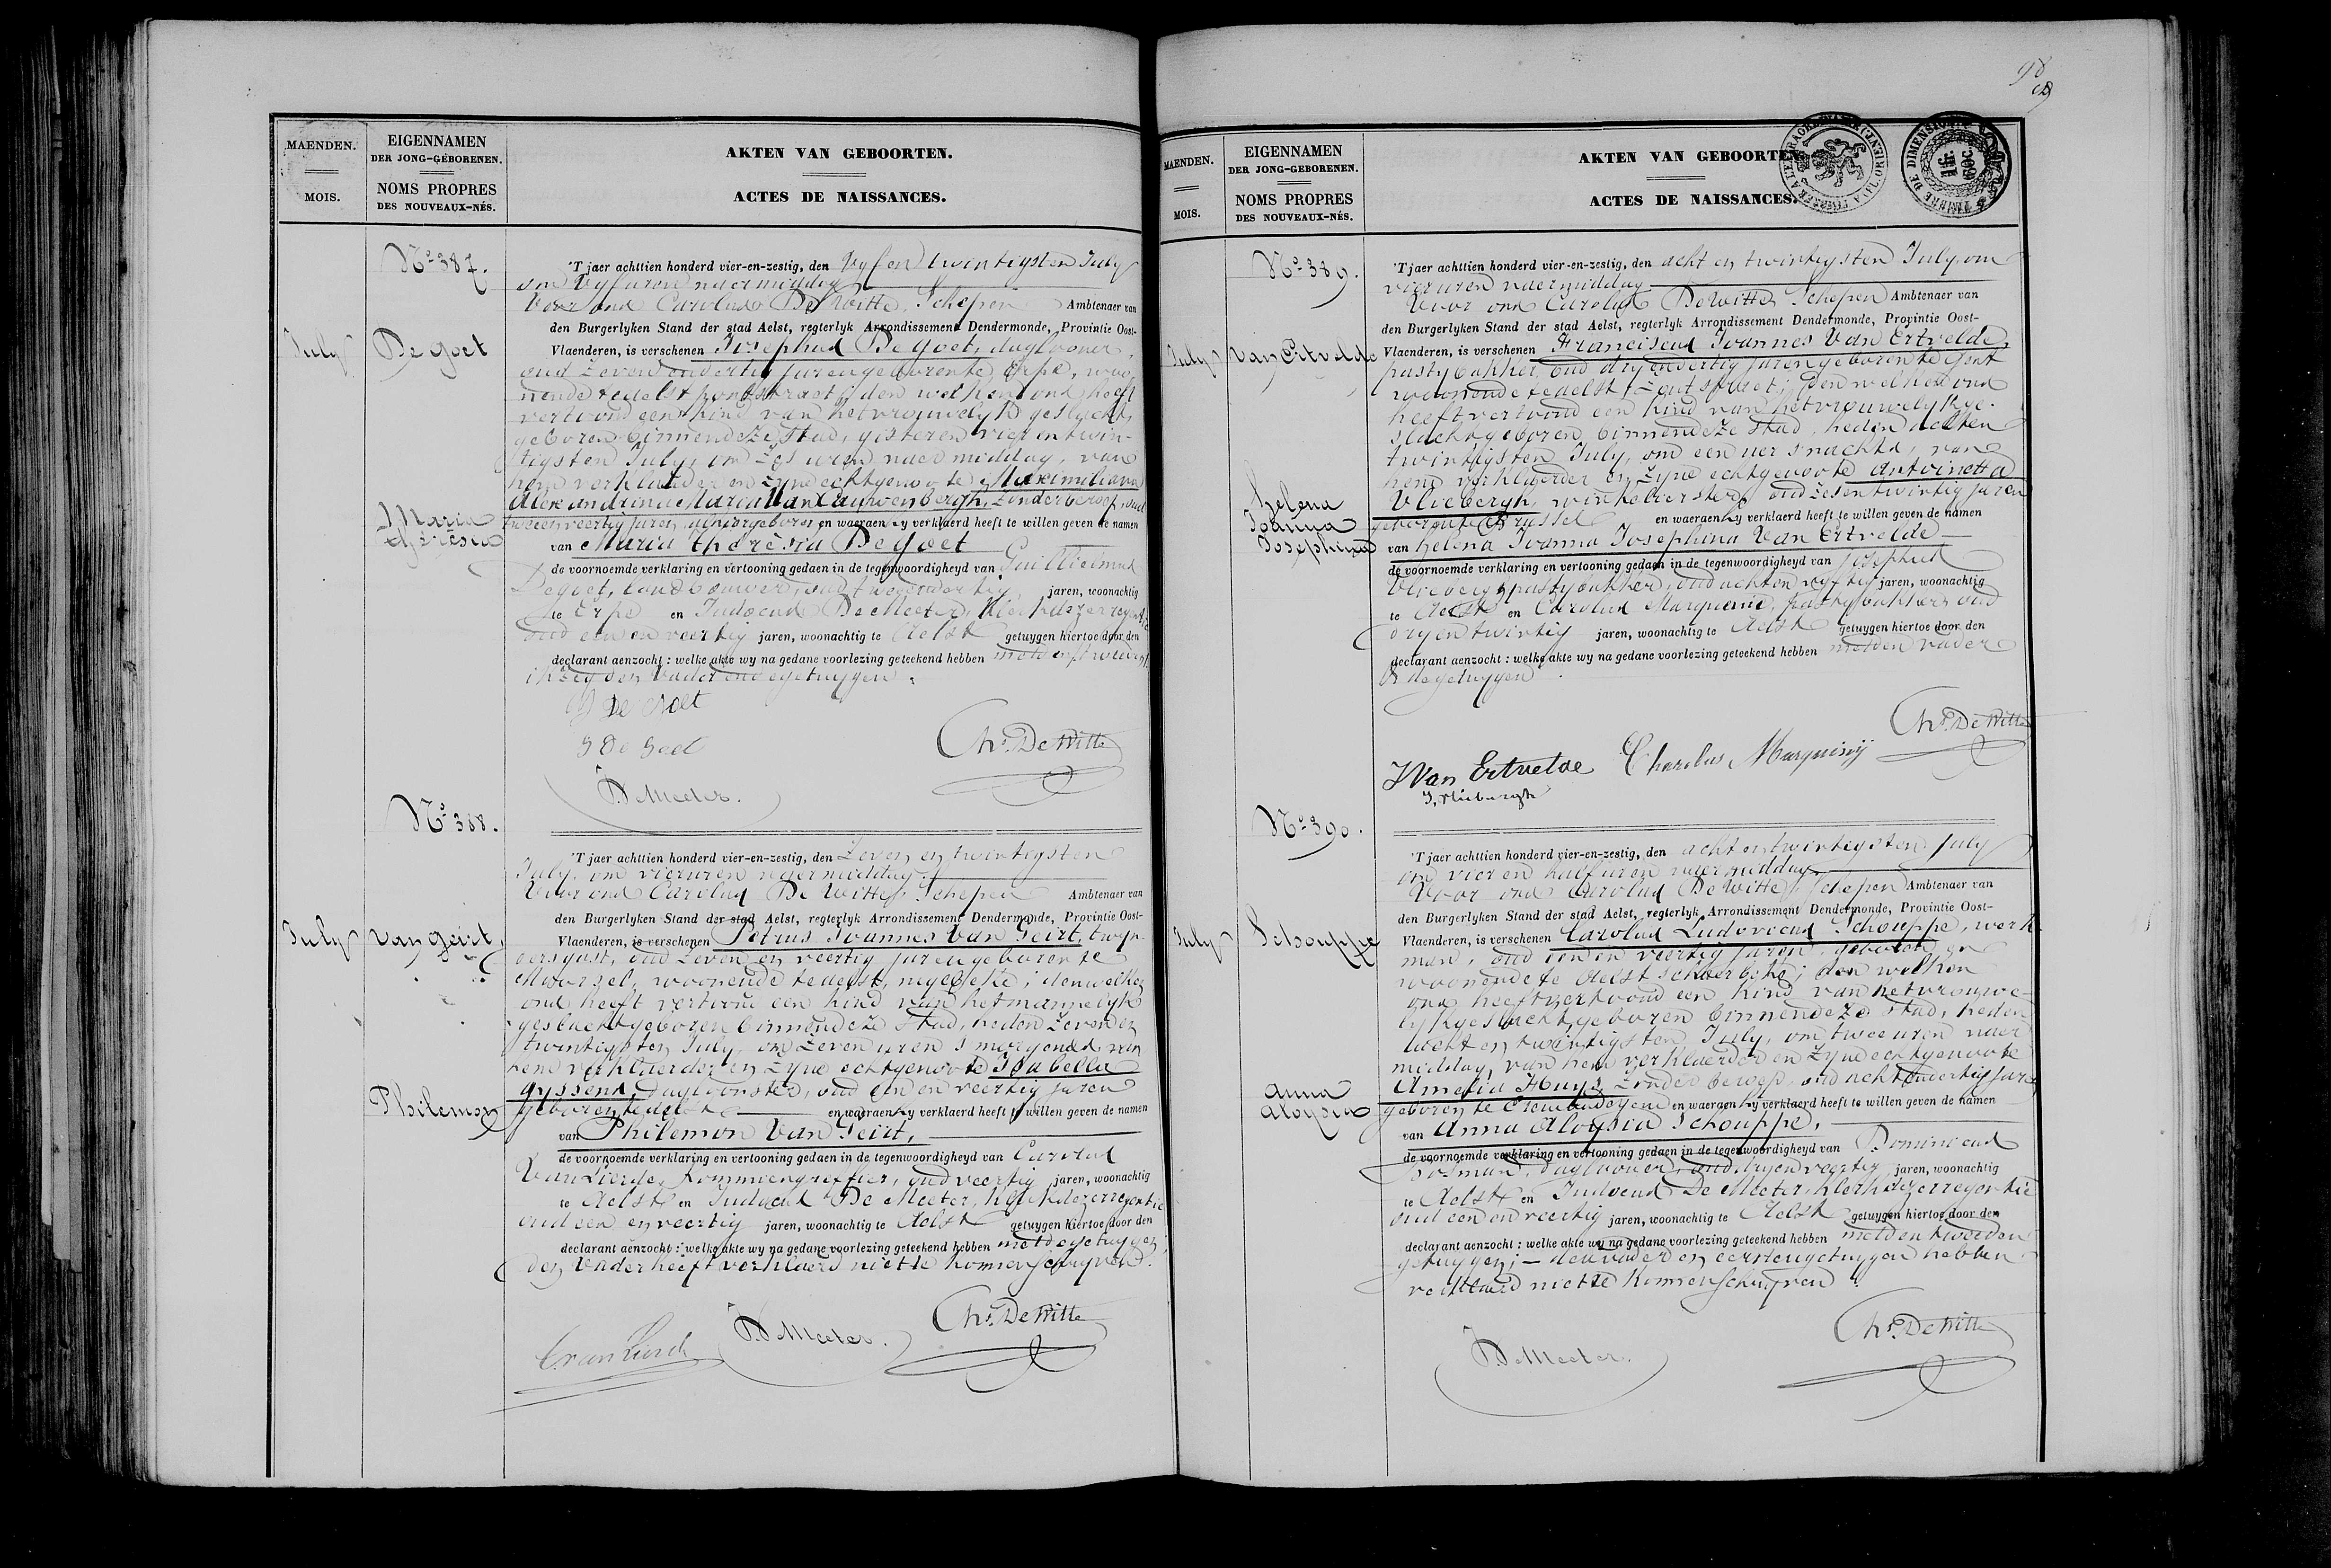 98
MAENDEN.
MOIS.
EIGENNAMEN
DER JONG-GEBORENEN.
NOMS PROPRES
DES NOUVEAUX-NÉS.
AKTEN VAN GEBOORTEN.
ACTES DE NAISSANCES.
No 387.
July
De Goet
Maria
Theresia
'T jaer achttien honderd vier-en-zestig, den vyf en twintigsten July
om vyf uren naermiddag
Voor ons Carolus De Witte, Schepen Ambtenaer van
den Burgerlyken Stand der stad Aelst, regterlyk Arrondissement Dendermonde, Provintie Oost-
Vlaenderen, is verschenen Josephus De Goet, daglooner,
oud zeven en dertig jaren geboren te Erpe, woo-
nende te Aelst pontstraet; den welken ons heeft
vertoond een kind van het vrouwelyk geslacht,
geboren binnen deze stad, gisteren vier en twin-
tigsten July, om zes uren naermiddag, van
hem verklaerder en zyne echtgenoote Maximiliana
Alexandrina Maria Van Cauwenbergh, zonder beroep, oud
twee en veertig jaren, alhier geboren en waeraen hy verklaerd heeft te willen geven de namen
van Maria Theresia De Goet
de voornoemde verklaring en vertooning gedaen in de tegenwoordigheyd van Guillielmus
Degoet, landbouwer, oud twee en dertig jaren, woonachtig
te Erpe en Judocus De Meeter, klerk dezer regentie
oud een en veertig jaren, woonachtig te Aelst getuygen hiertoe door den
declarant aenzocht : welke akte wy na gedane voorlezing geteekend hebben met den
vader en de getuygen.
De Meeter.
Chs. De Witte
No 388.
July
Van Geirt,
Philemon
'T jaer achttien honderd vier-en-zestig, den zeven en twintigsten
July, om vier uren naermiddag.
Voor ons Carolus De Witte, Schepen Ambtenaer van
den Burgerlyken Stand der stad Aelst, regterlyk Arrondissement Dendermonde, Provintie Oost-
Vlaenderen, is verschenen Petrus Joannes Van Geirt, twyn-
ders gast, oud zeven en veertig jaren geboren te
Moorsel, woonende te Aelst, ; den welken
ons heeft vertoond een kind van het mannelyk
geslacht geboren binnen deze stad, heden zeven en
twintigsten July, om zeven uren s'morgends, van
hem verklaerder en zyne echtgenoote Isabella
Gyssens, daglooster, oud een en veertig jaren
geboren te Aelst en waeraen hy verklaerd heeft te willen geven de namen
van Philemon Van Geirt,
de voornoemde verklaring en vertooning gedaen in de tegenwoordigheyd van Carolus
Van Lierde, kommiesgreffier, oud veertig jaren, woonachtig
te Aelst en Judocus De Meeter, klerk dezer regentie
oud een en veertig jaren, woonachtig te Aelst getuygen hiertoe door den
declarant aenzocht : welke akte wy na gedane voorlezing geteekend hebben met de getuygen,
den vader heeft verklaerd niet te konnen schryven.
C. van Lierde
De Meeter.
Chs. De Witte
MAENDEN.
MOIS.
EIGENNAMEN
DER JONG-GEBORENEN.
NOMS PROPRES
DES NOUVEAUX-NÉS.
AKTEN VAN GEBOORTEN.
ACTES DE NAISSANCES.
No 389.
July
Van Ertvelde
Helena
Joanna
Josephina
'T jaer achttien honderd vier-en-zestig, den acht en twintigsten July, om
vier uren naermiddag
Voor ons Carolus De Witte, Schepen Ambtenaer van
den Burgerlyken Stand der stad Aelst, regterlyk Arrondissement Dendermonde, Provintie Oost-
Vlaenderen, is verschenen Franciscus Joannes Van Ertvelde,
pastybakker, oud dry en dertig jaren geboren te Gent
woonende te Aelst, zoutstraet; den welken ons
heeft vertoond een kind van het vrouwelyk ge-
slacht geboren binnen deze stad, heden acht en
twintigsten July, om een uer s'nachts, van
hem verklaerder en zyne echtgenoote Antoinetta
Vliebergh, winkelierster, oud zes en twintig jaren
geboren te Brussel en waeraen hy verklaerd heeft te willen geven de namen
van Helena Joanna Josephina Van Ertvelde
de voornoemde verklaring en vertooning gedaen in de tegenwoordigheyd van Josephus
Vliebergh pastybakker, oud acht en vyftig jaren, woonachtig
te Aelst en Carolus Marquenie, pastybakker, oud
dry en twintig jaren, woonachtig te Aelst getuygen hiertoe door den
declarant aenzocht : welke akte wy na gedane voorlezing geteekend hebben met den vader
en de getuygen.
Chs. De Witte
Van Ertvelde
J. Vliebergh
No 390.
July
Schouppe
Anna
Aloysia
'T jaer achttien honderd vier-en-zestig, den acht en twintigsten July
om vier en half uren naermiddag
Voor ons Carolus De Witte, Schepen Ambtenaer van
den Burgerlyken Stand der stad Aelst, regterlyk Arrondissement Dendermonde, Provintie Oost-
Vlaenderen, is verschenen Carolus Ludovicus Schouppe, werk-
man, oud een en veertig jaren, geboren en
woonende te Aelst schaerbeke; den welken
ons heeft vertoond een kind van het vrouwe-
lyk geslacht, geboren binnen deze stad, heden
acht en twintigsten July, om twee uren naer
middag, van hem verklaerder en zyne echtgenoote
Amelia Huys, zonder beroep, oud acht en dertig jaren
geboren te Erembodegem en waeraen hy verklaerd heeft te willen geven de namen
van Anna Aloysia Schouppe,
de voornoemde verklaring en vertooning gedaen in de tegenwoordigheyd van Dominicus
Bosman, daglooner, oud dry en veertig jaren, woonachtig
te Aelst en Judocus De Meeter, klerk dezer regentie
oud een en veertig jaren, woonachtig te Aelst getuygen hiertoe door den
declarant aenzocht : welke akte wy na gedane voorlezing geteekend hebben met den tweeden
getuygen; — den vader en eersten getuygen hebben
verklaerd niet te konnen schryven.
De Meeter.
Chs. De Witte